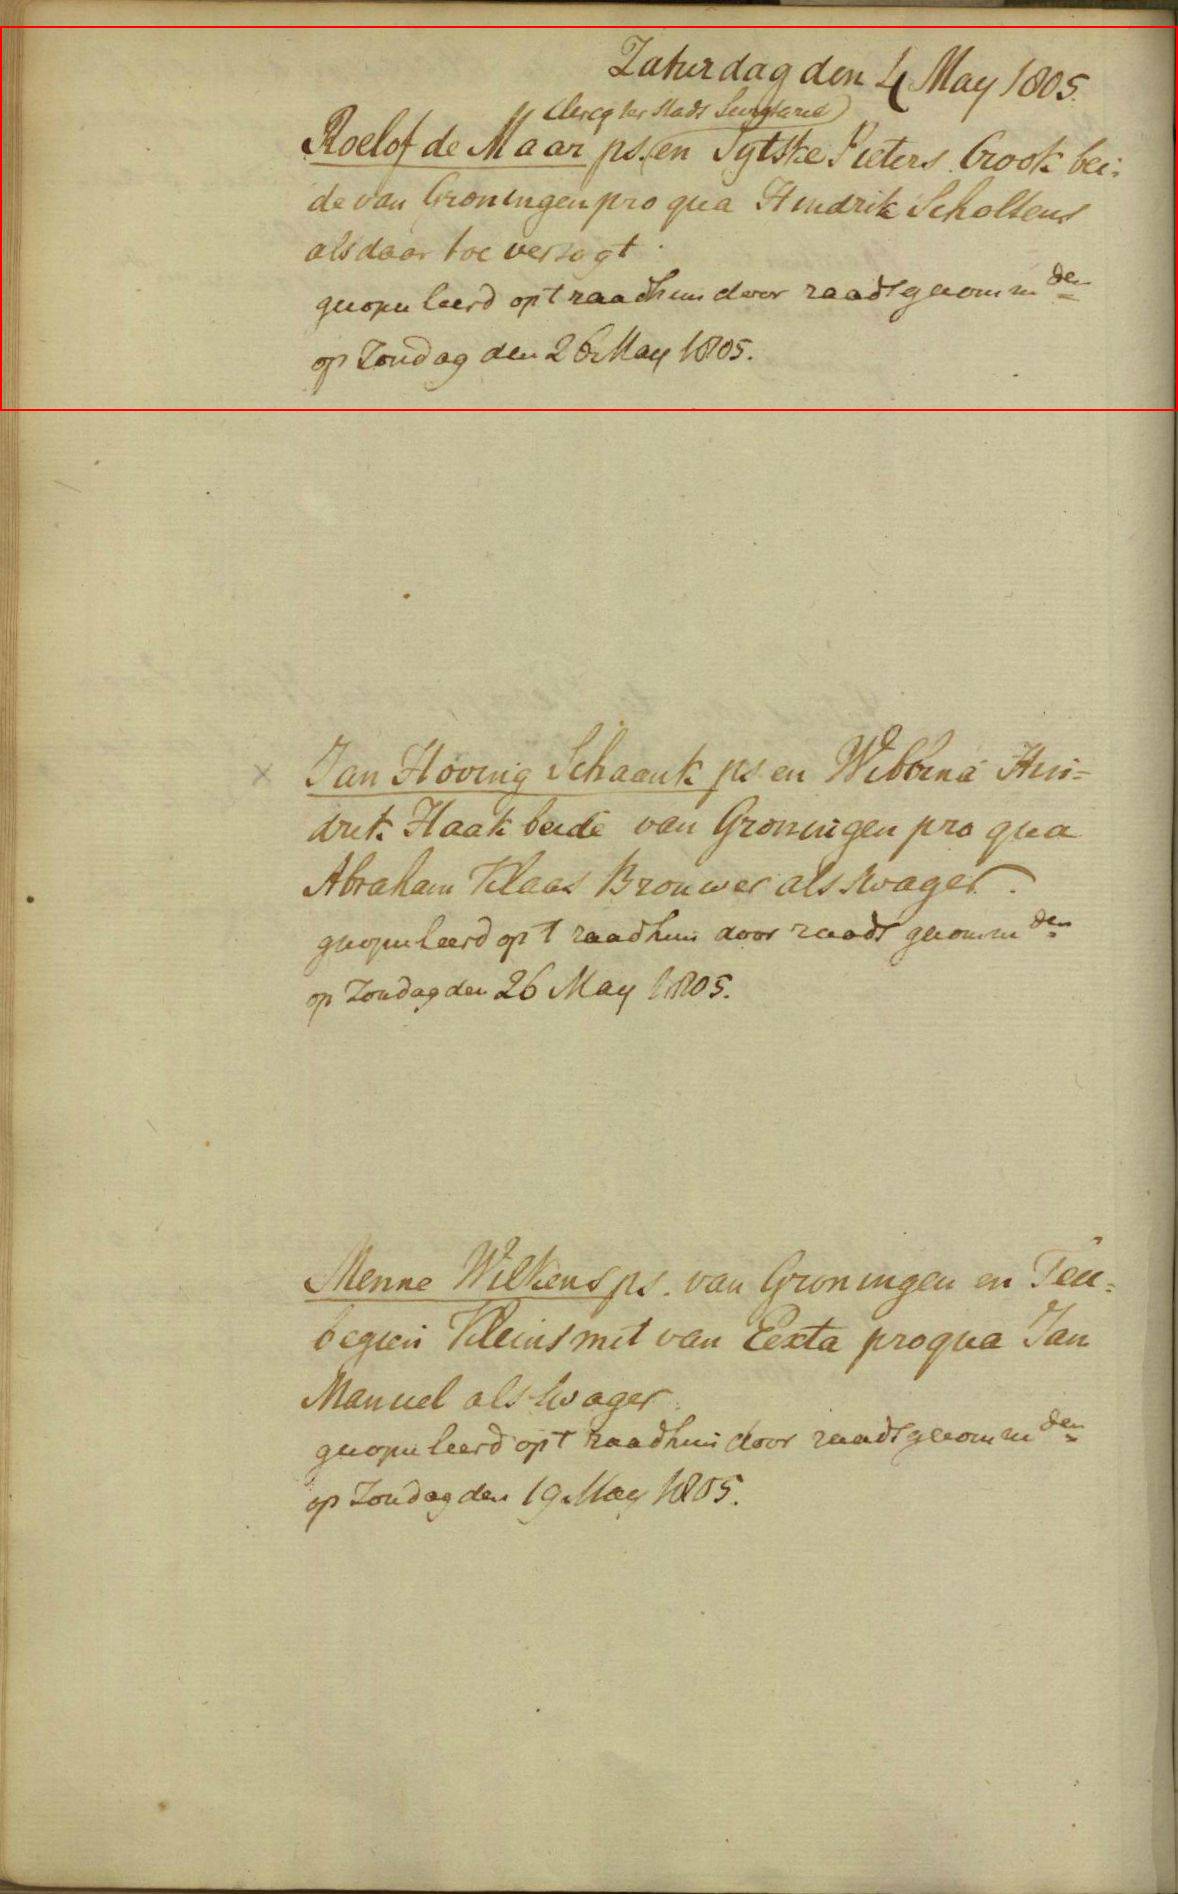 Zaturdag den 4 May 1805.
(Clercq ter stads Secretarie)
Roelof de Maar ps. en Sytske Pieters Crook bei:
de van Groningen pro qua Hindrik Scholtens
als daar toe versogt.
gecopuleerd op t raadhuis door raads gecomm den
op Zondag den 26 May 1805.
x Jan Hoving Schaank ps en Wibbina Hin=
drik Haak beide van Groningen pro qua
Abraham Klaas Brouwer als swager.
gecopuleerd op t raadhuis door raads gecomm den
op Zondag den 26 May 1805.
Menne Wilkens ps. van Groningen en Teu=
begien Kleinsmit van Eexta pro qua Jan
Manuel als swager.
gecopuleerd op t raadhuis door raads gecomm den
op Zondag den 19 May 1805.